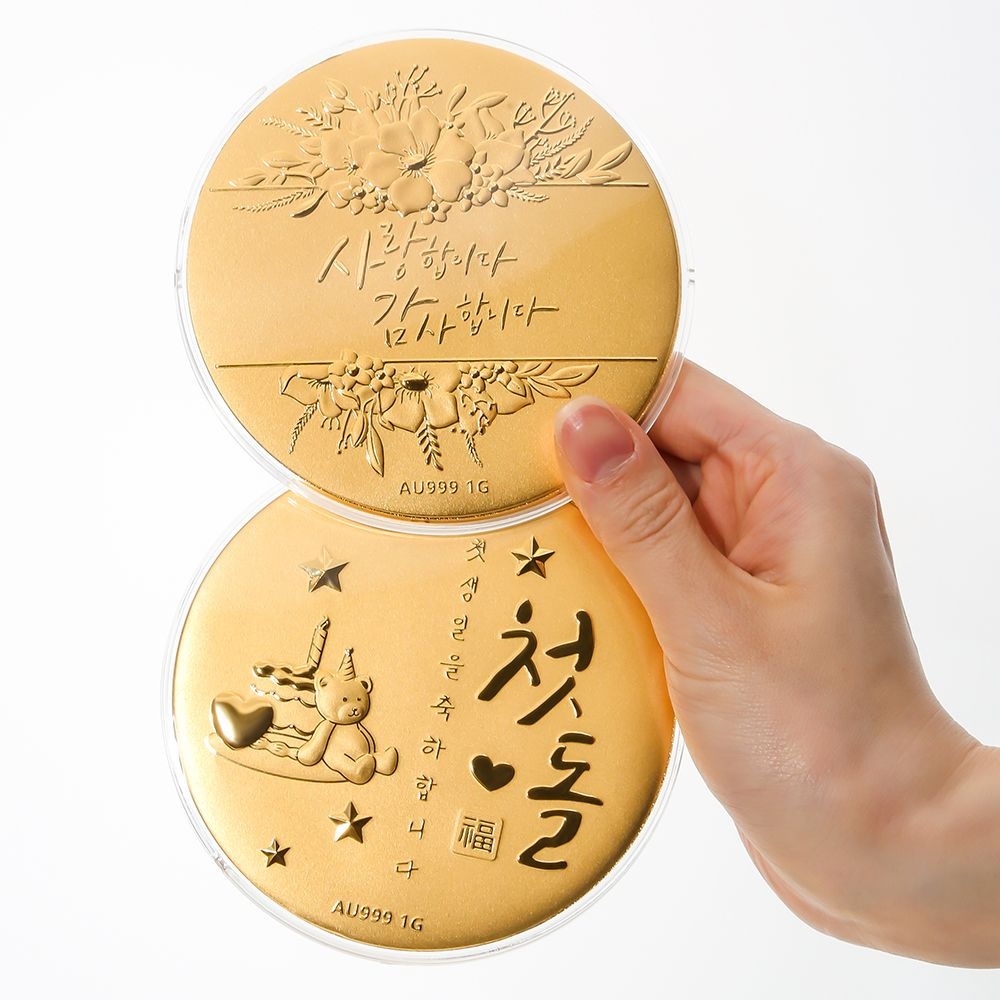 사랑합니다
감사합니다
AU999 1G
첫돌
첫생일을축하합니다
福
AU999 1G